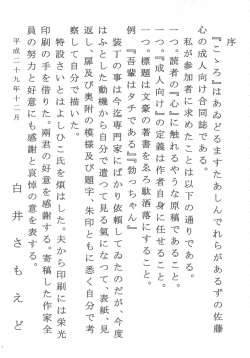 序
『こゝろ』はあゐどるますたあしんでれらがあるずの佐藤
心の成人向け合同誌である。
私が参加者に求めたことは以下の通りである。
一つ。読者の『心』に触れるやうな原稿であること。
一つ。『成人向け』の定義は作者自身に任せること。
一つ。標題は文豪の著書をゑろ駄洒落にすること。
例『吾輩はタチである』『勃っちゃん』
装丁の事は今迄専門家にばかり依頼してゐたのだが、今度
はふとした動機から自分で遣つて見る気になつて、表紙、見
返し、扉及び奥附の模様及び題字、朱印ともに悉く自分で考
察して自分で描いた。
特設さいとはよしひこ氏を煩はした。夫から印刷には栄光
印刷の手を借りた。両君の好意を感謝する。寄稿した作家全
員の努力と好意にも感謝と哀悼の意を表する。
平成二十九年十二月
白井さもえど